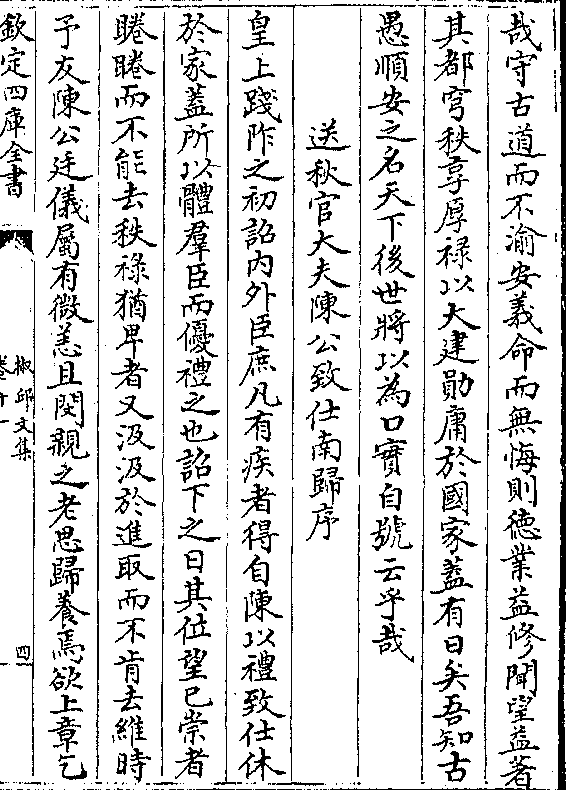 哉守古道而不渝安義命而無悔則德業益修聞望益著
其都穹秩享厚祿以大建勛庸於國家蓋有日矣吾知古
愚順安之名天下後世將以為口實自號云乎哉
送秋官大夫陳公致仕南歸序
皇上踐阼之初詔內外臣庶凡有疾者得自陳以禮致仕休
於家蓋所以體羣臣而優禮之也詔下之日其位望已崇者
睠睠而不能去秩祿猶卑者又汲汲於進取而不肯去維時
予友陳公廷儀屬有微恙且閔親之老思歸養焉欲上章乞
欽定四庫全書
椒邱文集
卷十一
四